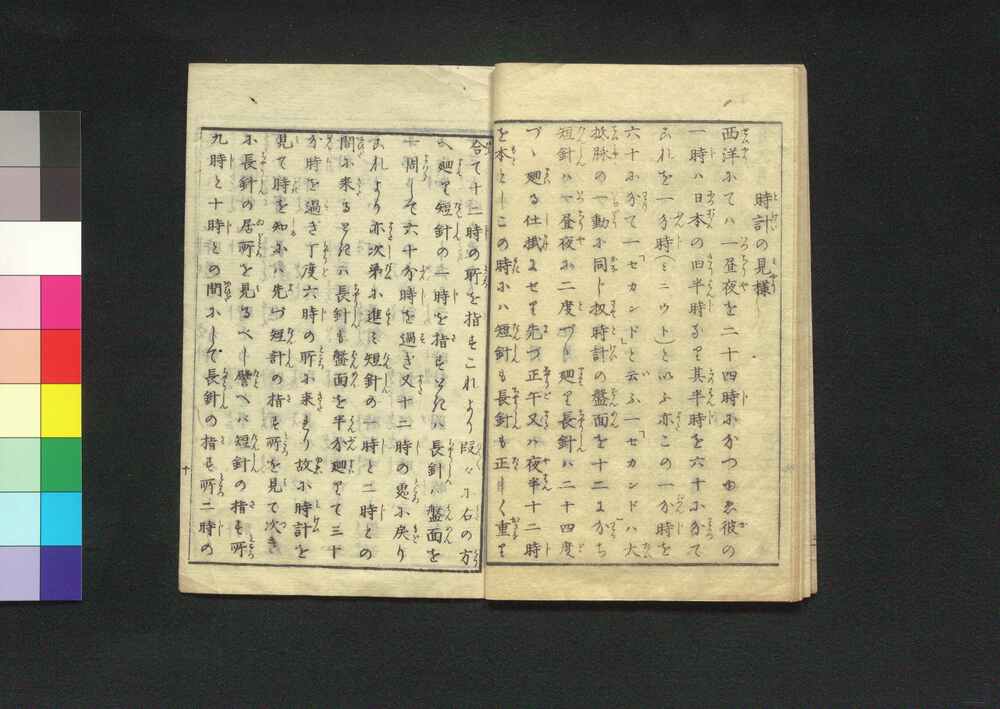 時計の見様
西洋にてハ一昼夜を二十四時にわかつゆゑ彼の
一時ハ日本の四半時なり其半時を六十にわかて
これを一分時(ミニウト)といふ亦この一分時を
六十にわかて一「セカンド」と云ふ一「セカンド」ハ大
抵脉の一動に同じ扨時計の盤面を十二にわかち
短針ハ一昼夜に二度づゝ廻り長針ハ二十四度
づゝ廻る仕掛なり先づ正午又ハ夜半十二時
を本としこの時にハ短針も長針も正しく重り
合て十二時の所を指すこれより段々に右の方
へ廻り短針の一時を指すときハ長針ハ盤面を
一周して六十分時を過ぎ又十二時の処に戻り
これより亦次第に進ミ短針の一時と二時との
間に来るときハ長針も盤面を半分廻りて三十
分時を過ぎ丁度六時の所に来るなり故に時計を
見て時を知にハ先づ短針の指す所を見て次ぎ
に長針の居所を見るべし譬へバ短針の指す所
九時と十時との間にして長針の指す所二時の
十